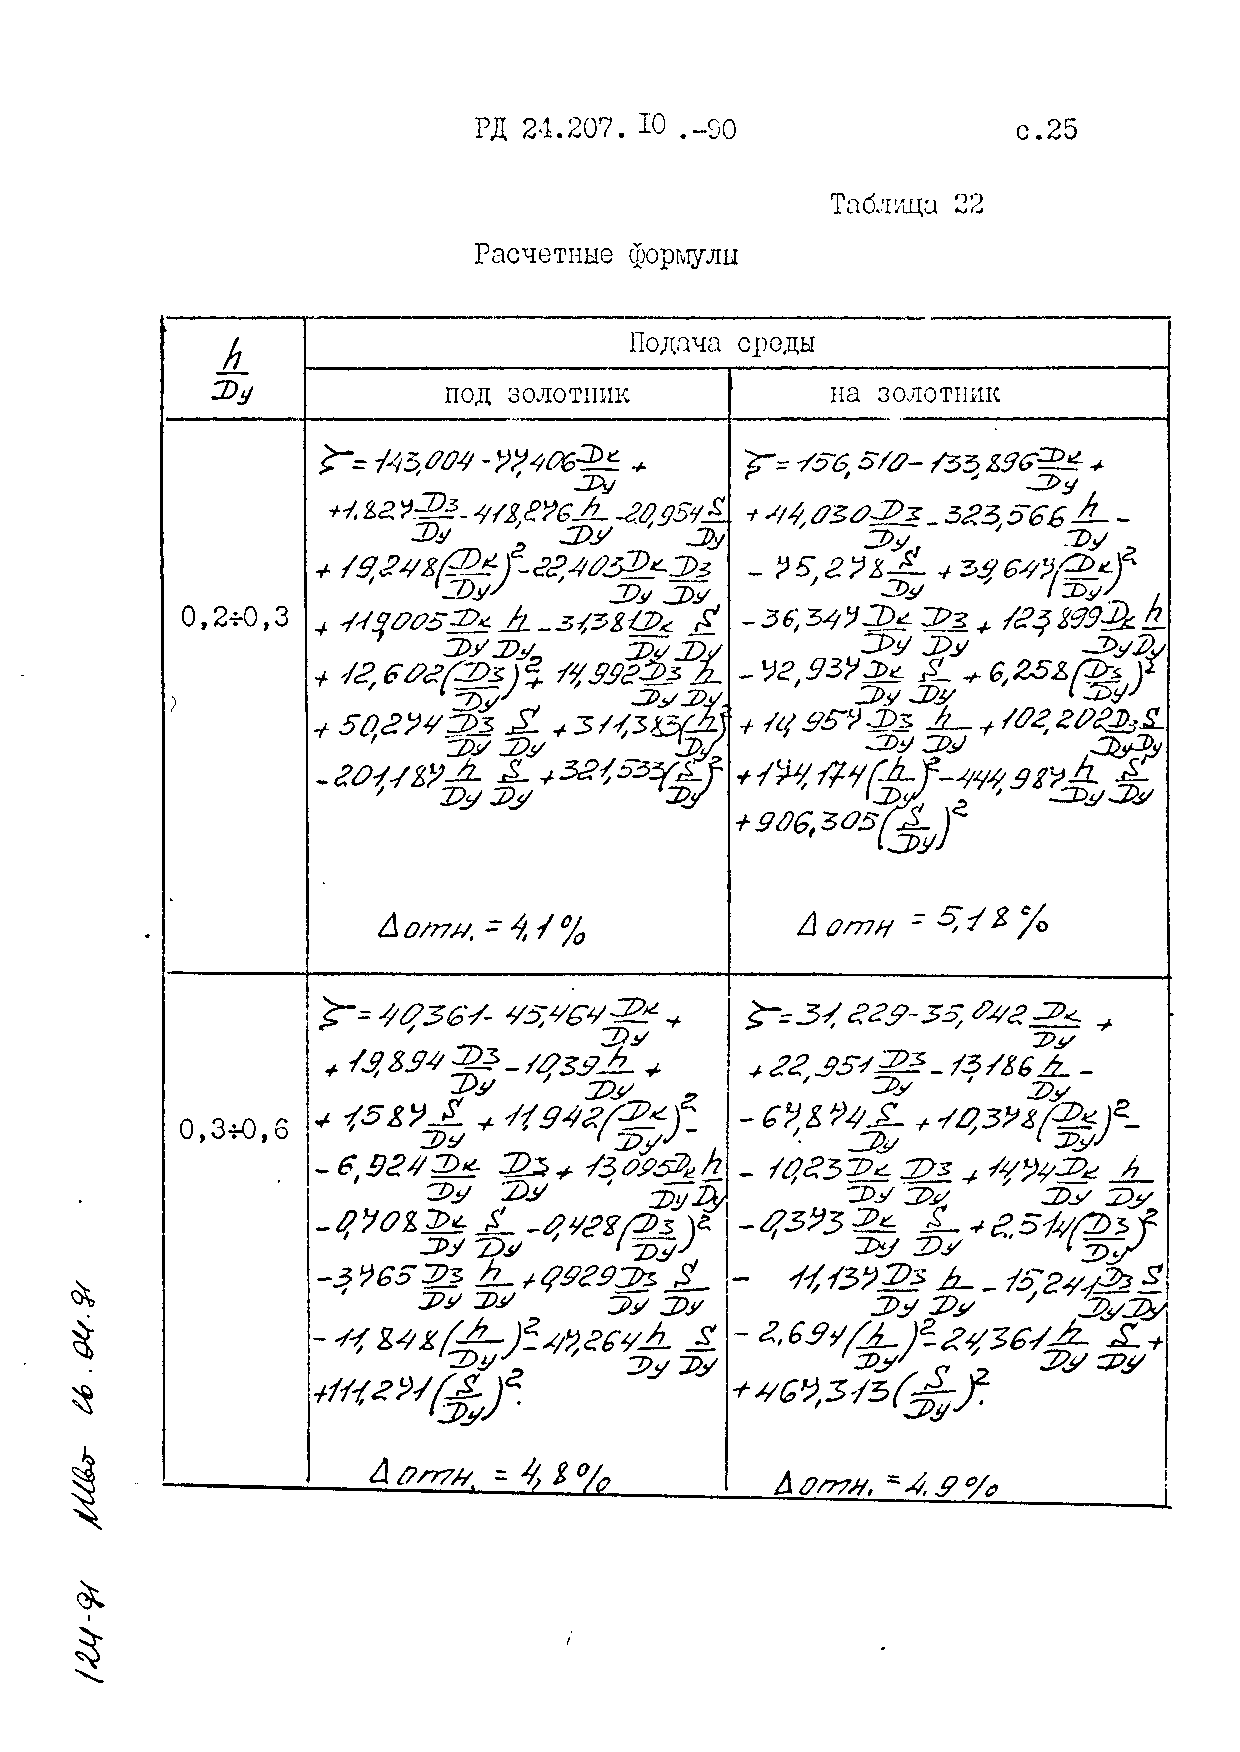 РД 24.207.10.-90 с.25
Таблица 22
Расчетные формулы
h/Dу
Подача среды
под золотник
на золотник
0,2÷0,3
ζ=143,004-77,406 Dк/Dу +
+1.827 Dз/Dу - 418,276 h/Dу - 20,954 S/Dу
+ 19,248(Dк/Dу)² - 22,403 Dк/Dу Dз/Dу
+ 119,005 Dк/Dу h/Dу - 31,381 Dк/Dу S/Dу
+ 12,602(Dз/Dу)² + 14,992 Dз/Dу h/Dу
+ 50,274 Dз/Dу S/Dу + 311,383(h/Dу)²
- 201,187 h/Dу S/Dу + 321,533(S/Dу)²
Δотн. = 4,1%
ζ=156,510-133,896 Dк/Dу +
+ 44,030 Dз/Dу - 323,566 h/Dу -
- 75,278 S/Dу + 39,647(Dк/Dу)²
- 36,347 Dк/Dу Dз/Dу + 123,899 Dк/Dу h/Dу
- 72,937 Dк/Dу S/Dу + 6,258(Dз/Dу)²
+ 14,957 Dз/Dу h/Dу + 102,202 Dз/Dу S/Dу
+ 174,174(h/Dу)² - 444,987 h/Dу S/Dу
+ 906,305(S/Dу)²
Δотн = 5,18%
0,3÷0,6
ζ=40,361-45,464 Dк/Dу +
+ 19,894 Dз/Dу - 10,39 h/Dу +
+ 1,587 S/Dу + 11,942(Dк/Dу)² -
- 6,924 Dк/Dу Dз/Dу + 13,095 Dк/Dу h/Dу
- 0,708 Dк/Dу S/Dу - 0,428(Dз/Dу)²
- 3,765 Dз/Dу h/Dу + 0,929 Dз/Dу S/Dу
- 11,848(h/Dу)² - 47,264 h/Dу S/Dу
+111,271(S/Dу)².
Δотн. = 4,8%
ζ=31,229-35,042 Dк/Dу +
+ 22,951 Dз/Dу - 13,186 h/Dу -
- 67,874 S/Dу + 10,378(Dк/Dу)² -
- 10,23 Dк/Dу Dз/Dу + 14,74 Dк/Dу h/Dу
- 0,373 Dк/Dу S/Dу + 2.514(Dз/Dу)²
- 11,137 Dз/Dу h/Dу - 15,241 Dз/Dу S/Dу
- 2,697(h/Dу)² - 24,361 h/Dу S/Dу +
+ 467,313(S/Dу)².
Δотн. = 4.9%
124-91 26.04.91